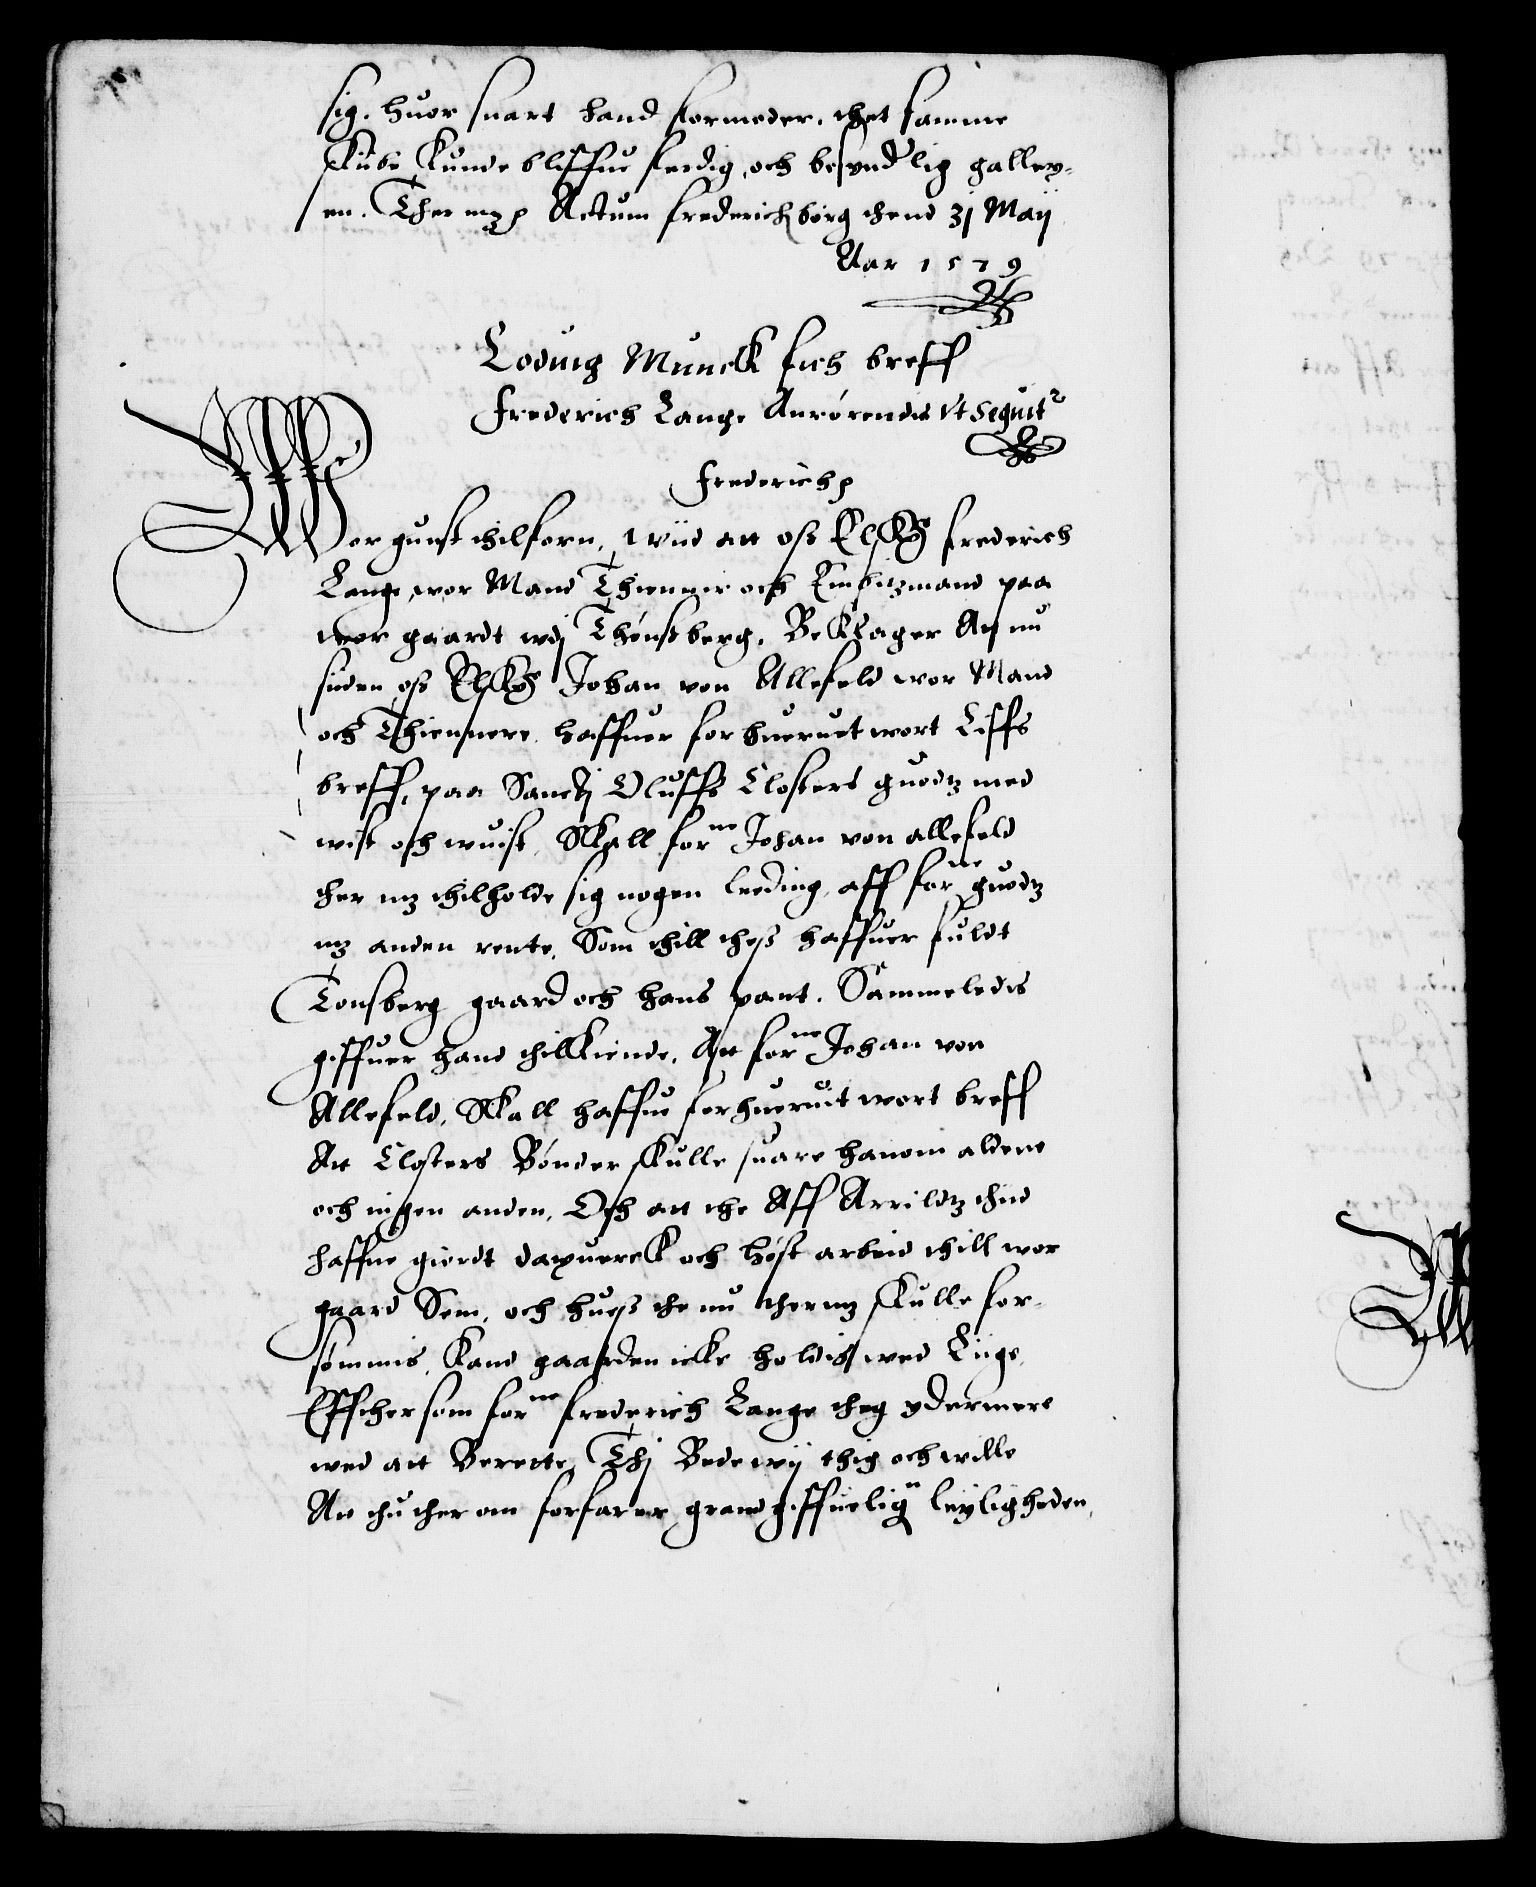 sig. huor snart hand formoder, thet samme
Skiibe kunde bliffue ferdig, och besynderlig galley-
en. Ther mz p Actum frederichsborg thend 31 Maij
Aar 1579
Loduig Munck fich breff
Frederich Lange Anrørendis vt seguitr
Frederich p
Wor gunst thilforn, Wiid att oss Elskg frederich
Lange, wor Mand Thienner och Embitzmand paa
wor gaardt wdj Thønsberg, Beklager At nu
siden oss Elskg Johan von Allefeld wor Mand
och Thiennere, haffuer forhueruet wort Liffs
breff, paa Sanctj Oluffs Closters guodtz med
wist och wuist, Skall forne Johan von allefeld
ther mz thilholde sig nogen leeding, aff forne guodtz
mz anden rente, Som thill thess haffuer fuldt
Tonsberg gaard och hans pant. Sammeledis
giffuer hand thilkiende, At forne Johan von
Allefeld, Skall haffue forhueruit wort breff
At Closters Bønder skulle suare hanom aldene
och ingen anden, Och att the Aff Arrildtz thid
haffue giordt daguerck och høst arbeid thill wor
gaard Sem, och huess the nu thermz skulle for-
sømmis, Kand gaarden icke holdis wed Liige,
Effthersom forne frederich Lange theg ydermere
wed att Berette, Thj Bede wij thig och wille
At thu ther om forfarer grandgiffuelign leyligheden,